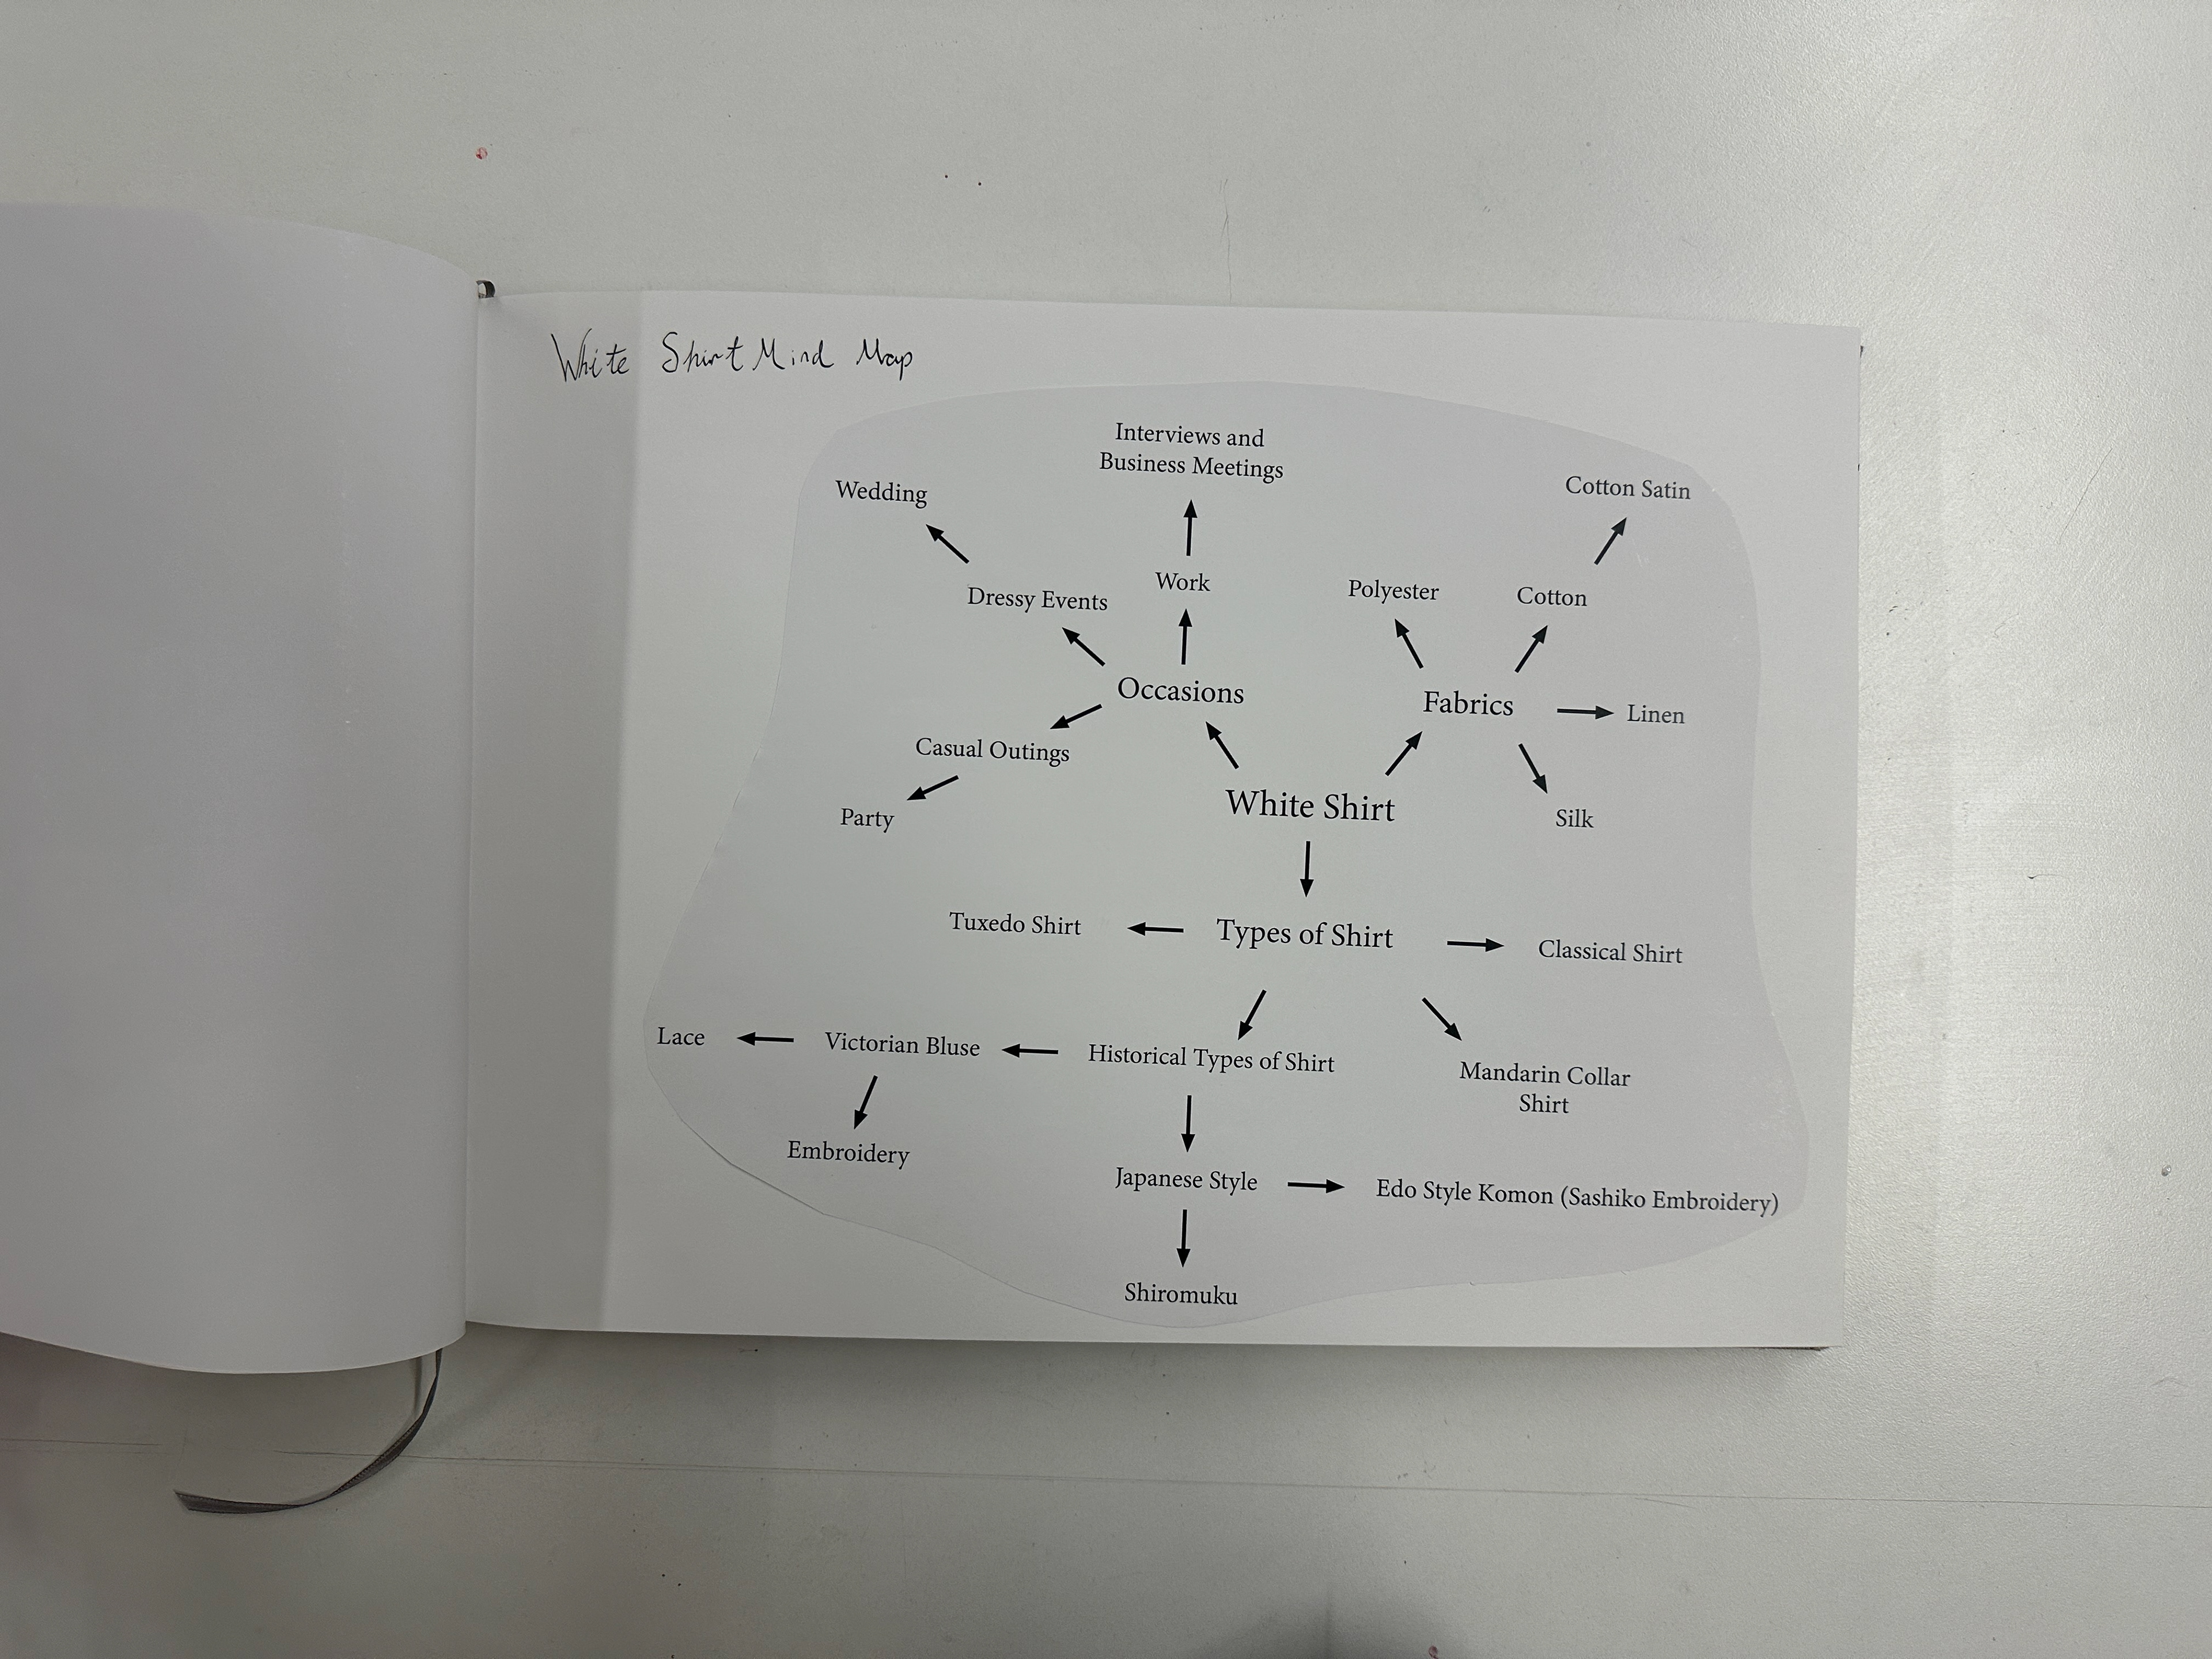 White Shirt Mind Map
Interviews and
Business Meetings
Wedding
Cotton Satin
Work
Polyester
Cotton
Dressy Events
Occasions
Fabrics
Linen
Casual Outings
White Shirt
Party
Silk
Tuxedo Shirt
Types of Shirt
Classical Shirt
Lace
Victorian Bluse
Historical Types of Shirt
Mandarin Collar
Shirt
Embroidery
Japanese Style
Edo Style Komon (Sashiko Embroidery)
Shiromuku